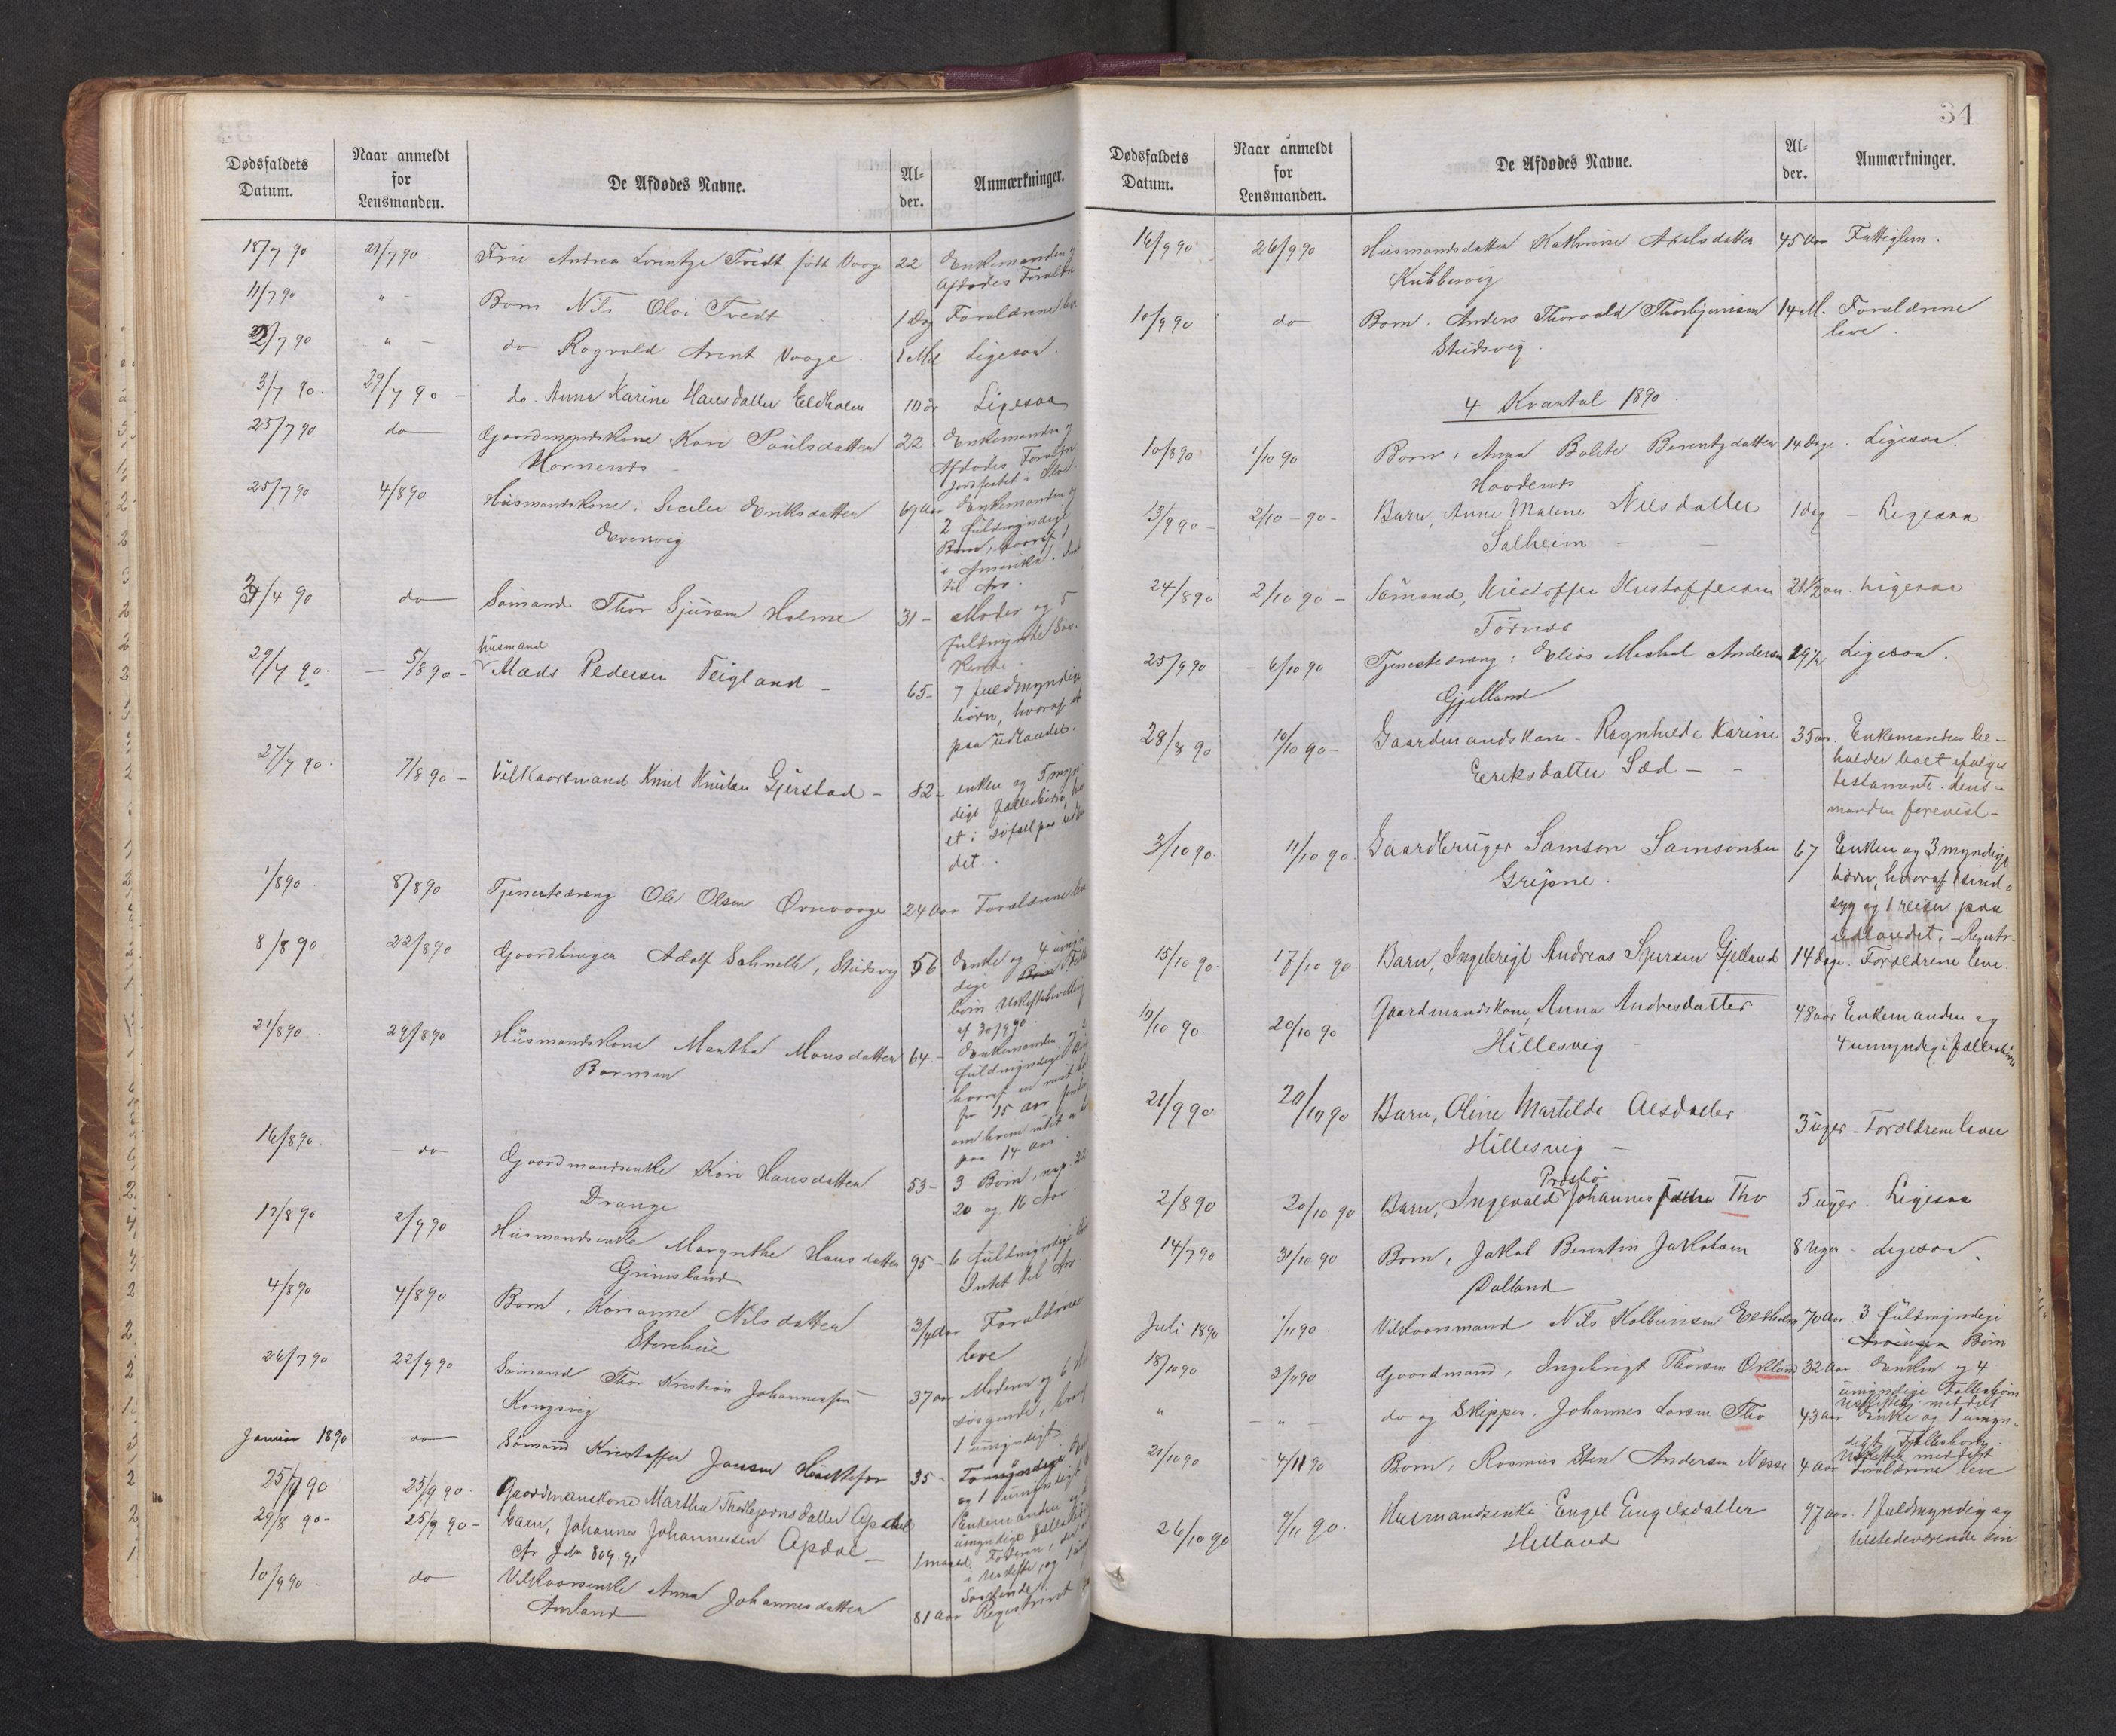 Dødsfaldets Datum.
Naar anmeldt for Lensmanden.
De Afdødes Navne.
Al-der.
Anmærkninger.
18/7 90 21/7 90 Fru Andrea Lorentze Tvedt født Vaage 22 Enkemanden
Afdødes Foræl
11/7 90 " - Barn Nils Olai Tvedt 1 Dag Forældrene
/7 90 " - do Ragvald Arent Vaage. 1 Md Ligesaa.
3/7 90. 29/7 90 - do. Anna Karine Hansdatter Eldholm 10 år Ligesaa
25/7 90 do Gaardmandskone Kari Poulsdatter 22 Enkemanden
Hornenes - Afdødes Foræl
jordfæstet i
25/7 90 4/8 90 Husmandskone. Secilia Eriksdatter 69 Aar Enkemanden og
Evenvig 2 fuldmyndige
Børn, hvoraf 1
i Amerika. Intet
til Arv.
/4 90 do Sømand Thor Sjursen Holme 31 - Moder og 5
fuldmyndige Søs-
kende.
29/7 90. - 5/8 90 - husmand
Mads Pedersen Teigland - 65 - 7 fuldmyndige
børn, hvoraf et
paa udlandet.
27/7 90. 7/8 90 - Vilkaarsmand Knut Knutsen Gjerstad - 82 - enken og 5 myn-
dige fællesbørn,
et i
det.
1/8 90 8/8 90 Tjenestedreng Ole Olsen Ørnevaage 24 Aar Forældrene
8/8 90 22/8 90 Gaardbruger Adolf Schnelle, Studsvig 56 Enke og 4 umyn-
dige
børn
af 30/9 90.
21/8 90 29/8 90 Husmandskone Martha Monsdatter 64 - Enkemanden. 7
Barmen fuldmyndige
hvoraf en
for 15 aar
om hvem intet
paa 14 aar.
16/8 90. - do Gaardmandsenke Kari Hansdatter 53 - 3 Børn, resp. 22
Drange 20 og 16 Aar.
17/8 90 2/9 90 Husmandsenke Margrethe Hansdatter 95 - 6 fuldmyndige
Grimsland Intet til Arv.
4/8 90 4/8 90 Barn, Karianne Nilsdatter 3/4 Aar Forældrene
Storebue leve
26/7 90 22/9 90 Sømand Thor Kristian Johannessen 37 aar Moderen og 6
Kongsvig søsgende, hvoraf
1 umyndigt.
Januar 1890 do Sømand Kristoffer Jansen 35 -
og 1 umyndigt
25/7 90 25/9 90. Gaardmanskone Martha Thorbjørnsdatter Apdal Enkemanden og
umyndige fællesbørn
29/8 90 - 25/9 90 - barn, Johannes Johannesen Apdal - 1 maaned. Faderen,
cfr Jdr 809.91 i Uskifte, og 1
Søskende.
10/9 90 do Vilkaarsenke Anna Johannesdatter 81 aar Registreret
Amland
34
Dødsfaldets Datum.
Naar anmeldt for Lensmanden.
De Afdødes Navne.
Al-der.
Anmærkninger.
16/9 90 26/9 90 Husmandsdatter Kathrine Akselsdatter 45 Aar Fattiglem.
Kubbervig
10/9 90 do Barn. Anders Thorvald Thorbjørnsen 14 M. Forældrene
Studsvig. leve.
4 Kvartal 1890.
10/8 90 1/10 90 Barn, Anna Bolete Berentsdatter 14 Dage. Ligesaa.
Haadenes
13/9 90 - 2/10 - 90 - Barn, Anne Malene Nilsdatter 1 dag - Ligesaa
Salheim -
24/8 90 2/10 90 - Sømand, Kristoffer Kristoffersen 21 1/2 aar. Ligesaa
Tørnes
25/9 90 - 6/10 90 Tjenestedreng: Elias Mikal Andersen 29 1/2 Ligesaa.
Gjelland
28/8 90 10/10 90 - Gaardmandskone - Ragnhilde Karine 35 aar. Enkemanden be-
Eriksdatter Sæd - - holder boet ifølge
testamente. Lens-
manden forevist -
3/10 90. 11/10 90. Gaardbruger Samson Samsonsen 67 Enken og 3 myndige
Grejpne. børn, hvoraf 1 sind-
syg og 1 reiser paa
udlandet. - Registr.
15/10 90. 17/10 90 Barn, Ingebrigt Andreas Sjursen Gjelland 14 dage. Forældrene leve.
10/10 90. 20/10 90 Gaardmandskone, Anna Andresdatter 48 aar Enkemanden og
Hillesvig - 4 umyndige fællesbørn
21/9 90 20/10 90 Barn, Oline Martilde Alsdatter 3 uger - Forældrene lever
Hillesvig -
2/8 90 20/10 90 Barn, Ingevald Johannes Tho 5 uger. Ligesaa
14/7 90 31/10 90 Barn, Jakob Berentin Jakobsen 8 Uger - Ligesaa.
Dalland
Juli 1890 1/11 90. Vilkaarsmand Nils Kolbeinsen Eltholm 70 Aar. 3 fuldmyndige
Børn
18/10 90 3/11 90 Gaardmand, Ingebrigt Thorsen Økland 32 Aar. Enken og 4
umyndige Fællesbørn
Uskifte meddelt
" - " - do og Skipper. Johannes Larsen Tho 43 Aar Enke og 1 umyn-
digt Fællesbarn.
Uskifte meddelt
21/10 90 - 4/11 90 Barn, Rasmus Sten Andersen Nesse 4 Aar Forældrene leve
26/10 90 9/11 90. Husmandsenke Engel Engelsdatter 97 aar. 1 fuldmyndig og
Helland tilstedeværende søn